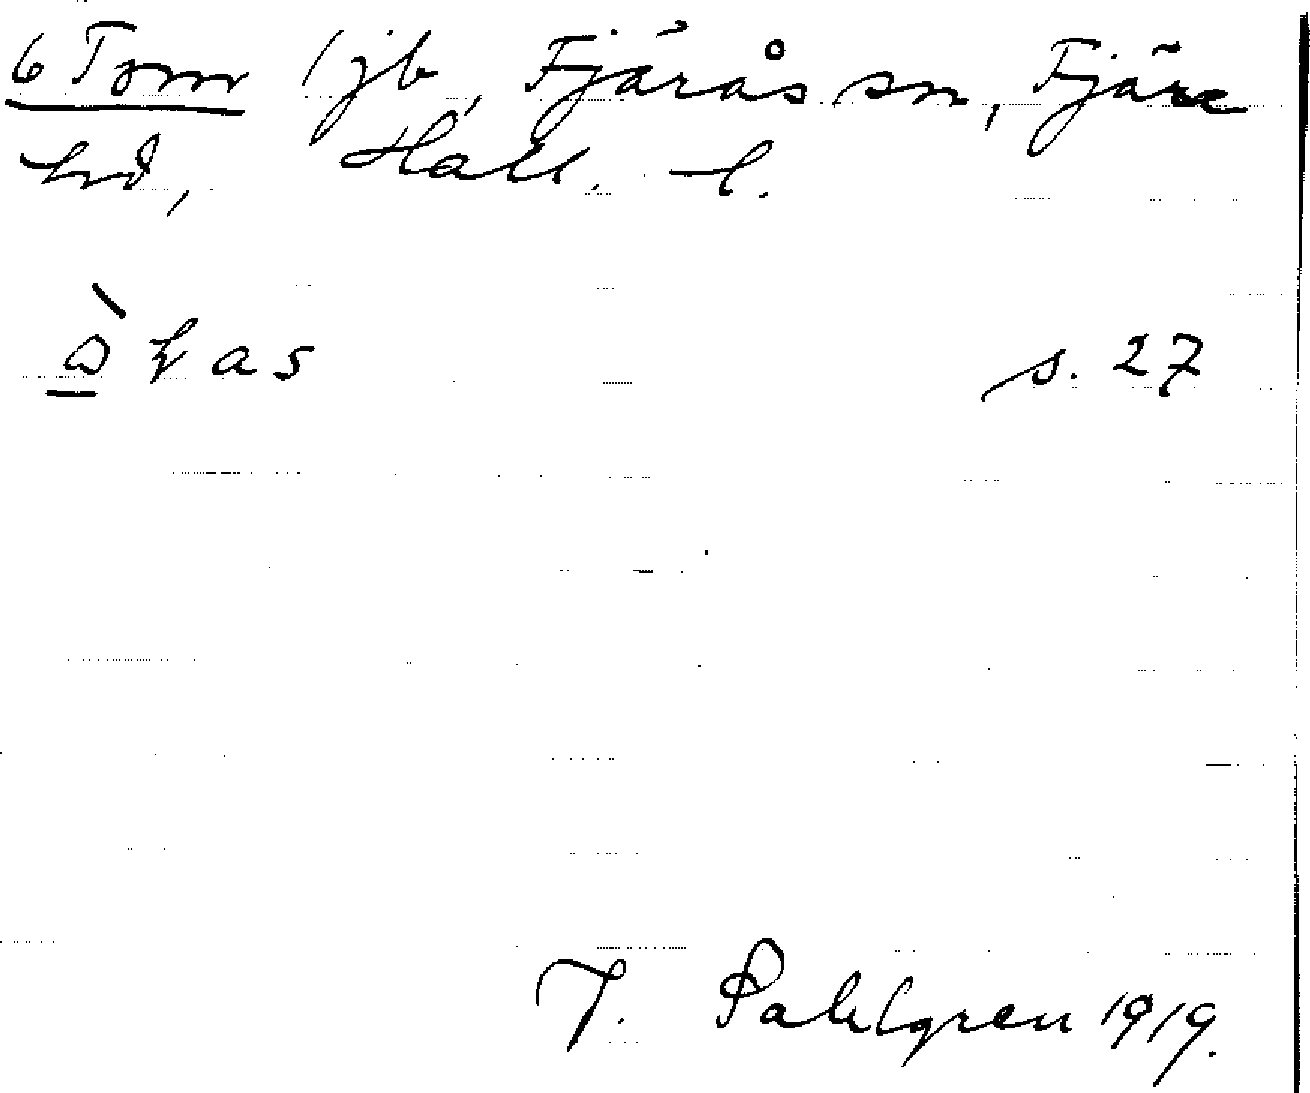 6 Tom 1 jb, Fjärås sn, Fjäre
hd, Hall. l.
s. 27
J. Sahlgren 1919.